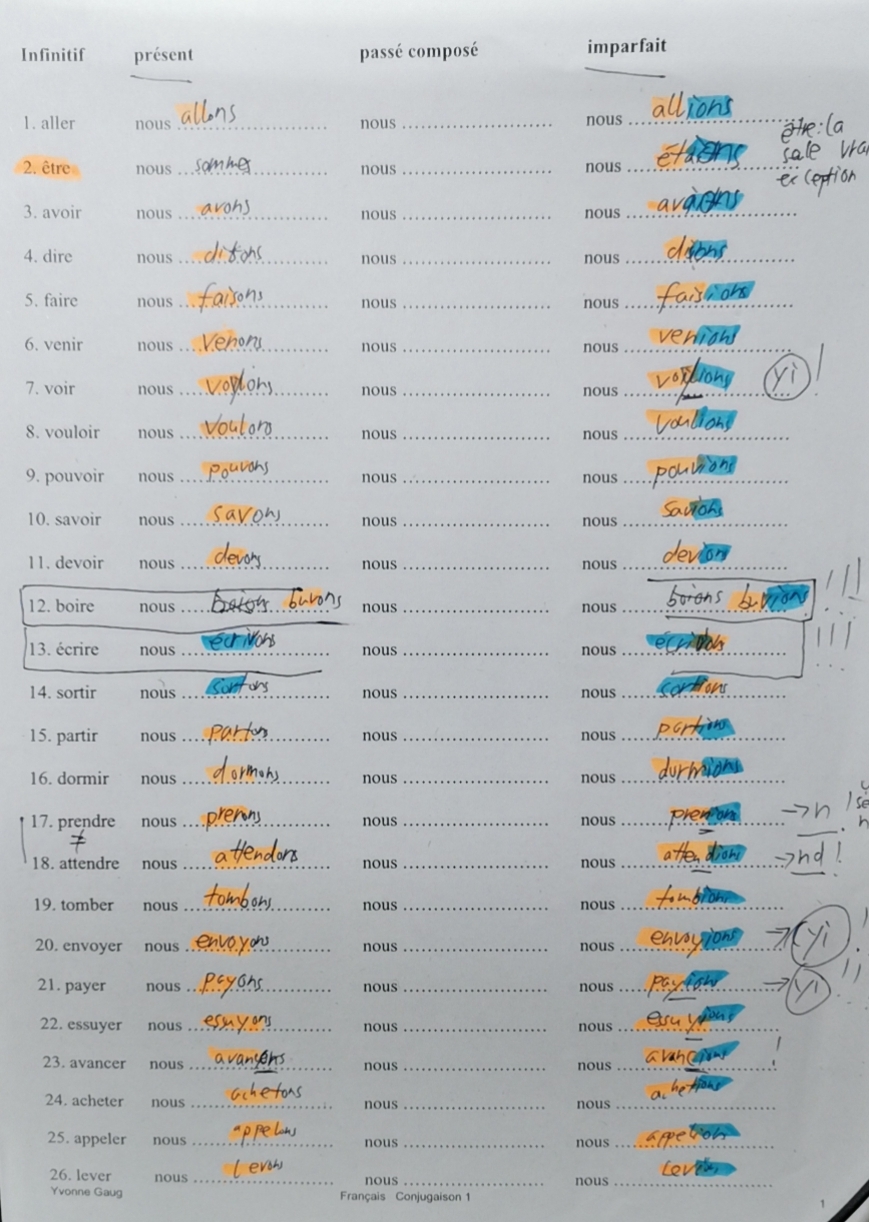 Infinitif présent passé composé imparfait
1. aller nous allons nous nous allions
être: la
2. être nous sommes nous nous étions sale vrai
exception
3. avoir nous avons nous nous avions
4. dire nous disons nous nous disions
5. faire nous faisons nous nous faisions
6. venir nous venons nous nous venions
7. voir nous voyons nous nous voyions yi !
8. vouloir nous voulons nous nous voulions
9. pouvoir nous pouvons nous nous pouvions
10. savoir nous savons nous nous savions
11. devoir nous devons nous nous devion
12. boire nous boions buvons nous nous boions buvions !!!
13. écrire nous écrivons nous nous !!!
14. sortir nous sortons nous nous sortions
15. partir nous partons nous nous partions
16. dormir nous dormons nous nous dormions
17. prendre nous prenons nous nous prenions → n !
≠
18. attendre nous attendons nous nous attendions → nd !
19. tomber nous tombons nous nous tombions
20. envoyer nous envoyons nous nous envoyions → yi !
21. payer nous payons nous nous payions → yi !!
22. essuyer nous essuyons nous nous essuyions
23. avancer nous avançons nous nous avancions !
24. acheter nous achetons nous nous achetions
25. appeler nous appelons nous nous appelions
26. lever nous levons nous nous levions
Yvonne Gaug Français Conjugaison 1 1